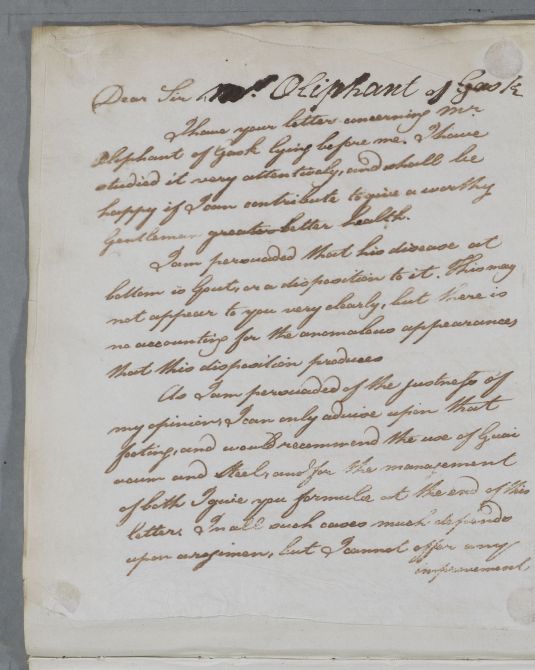 Dear Sir Mr. Oliphant of Gask
I have your letter concerning Mr.
Oliphant of Gask lying before me. I have
studied it very attentively, and shall be
happy if I can contribute to give a worthy
Gentleman greater better health.
I am persuaded that his disease at
bottom is Gout, or a disposition to it. This may
not appear to you very clearly, but there is
no accounting for the anomalous appearances
that this disposition produces
As I am persuaded of the justness of
my opinion, I can only advise upon that
footing, and would recommend the use of Guai
acum and Steel, and for the management
of both I give you formulæ at the end of this
letter. In all such cases much depends
upon a regimen, but I cannot offer any
improvement